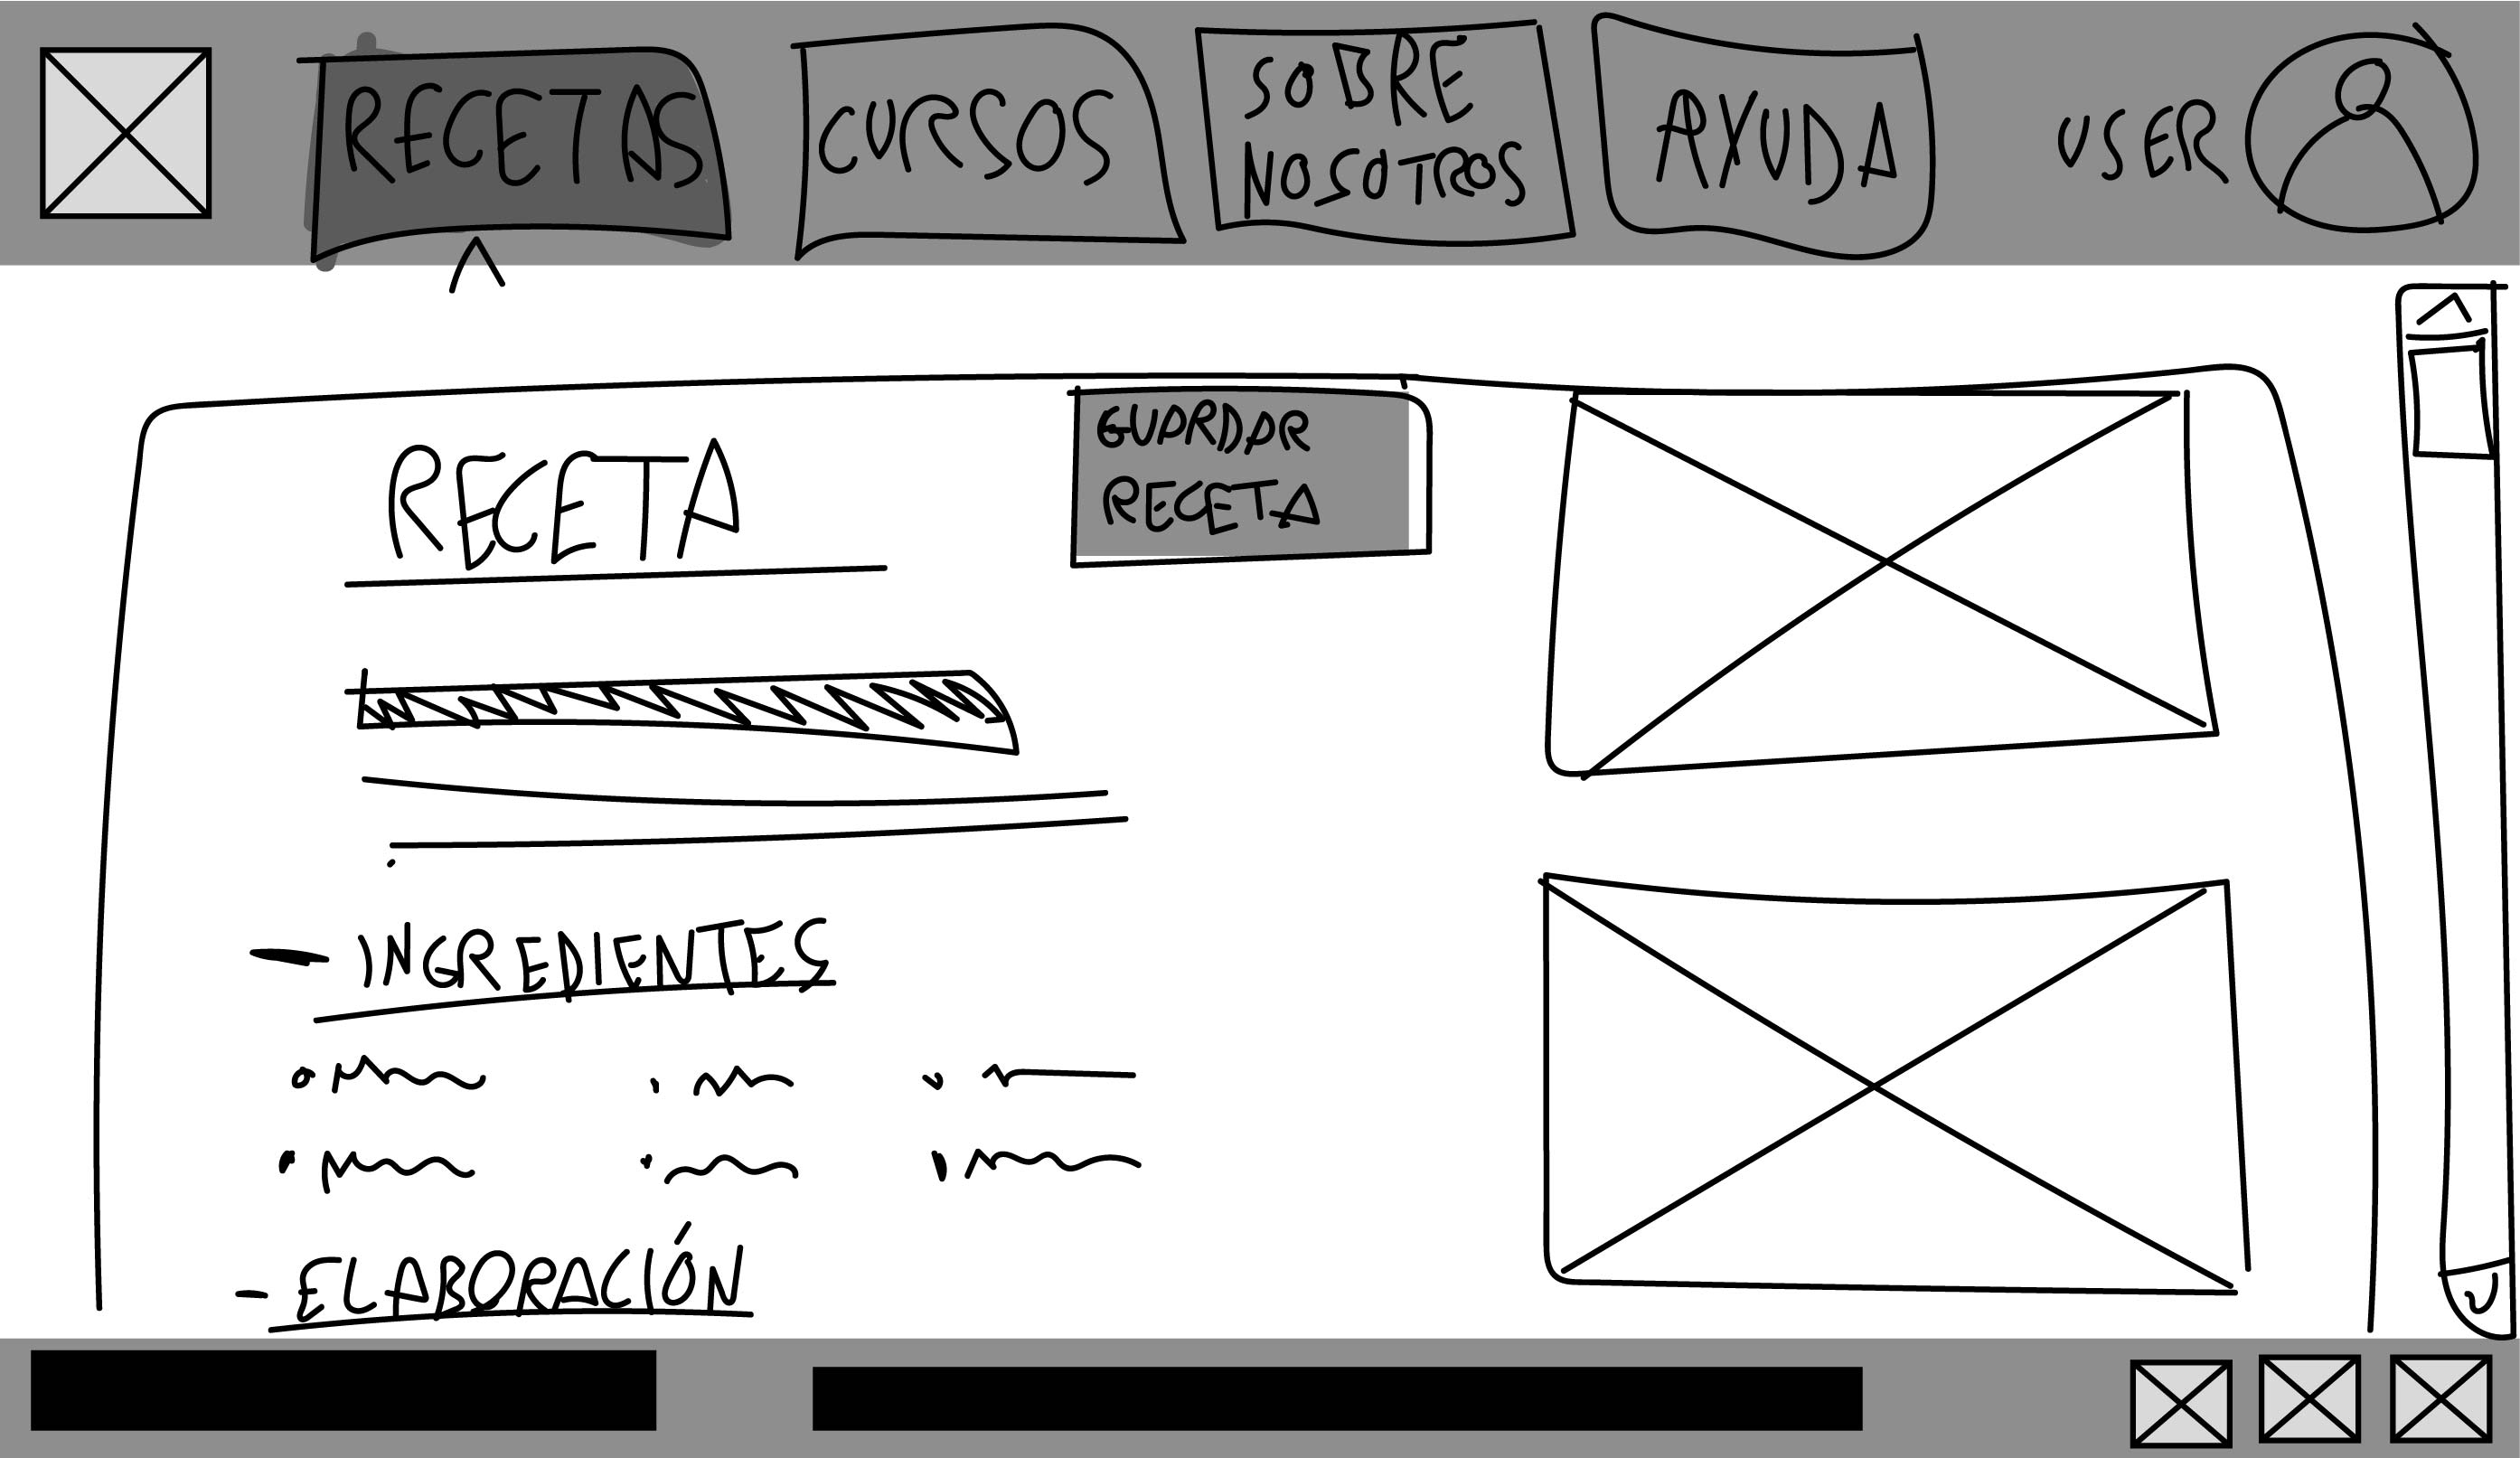 RECETAS
CURSOS
SOBRE
NOSOTROS
AYUDA
USER
RECETA
GUARDAR
RECETA
- INGREDIENTES
- ELABORACIÓN